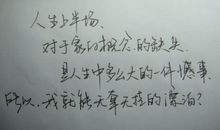 人生上半场、
对于家的概念的缺失
是人生中多么大的一件憾事
所以,我就能无牵无挂的漂泊?